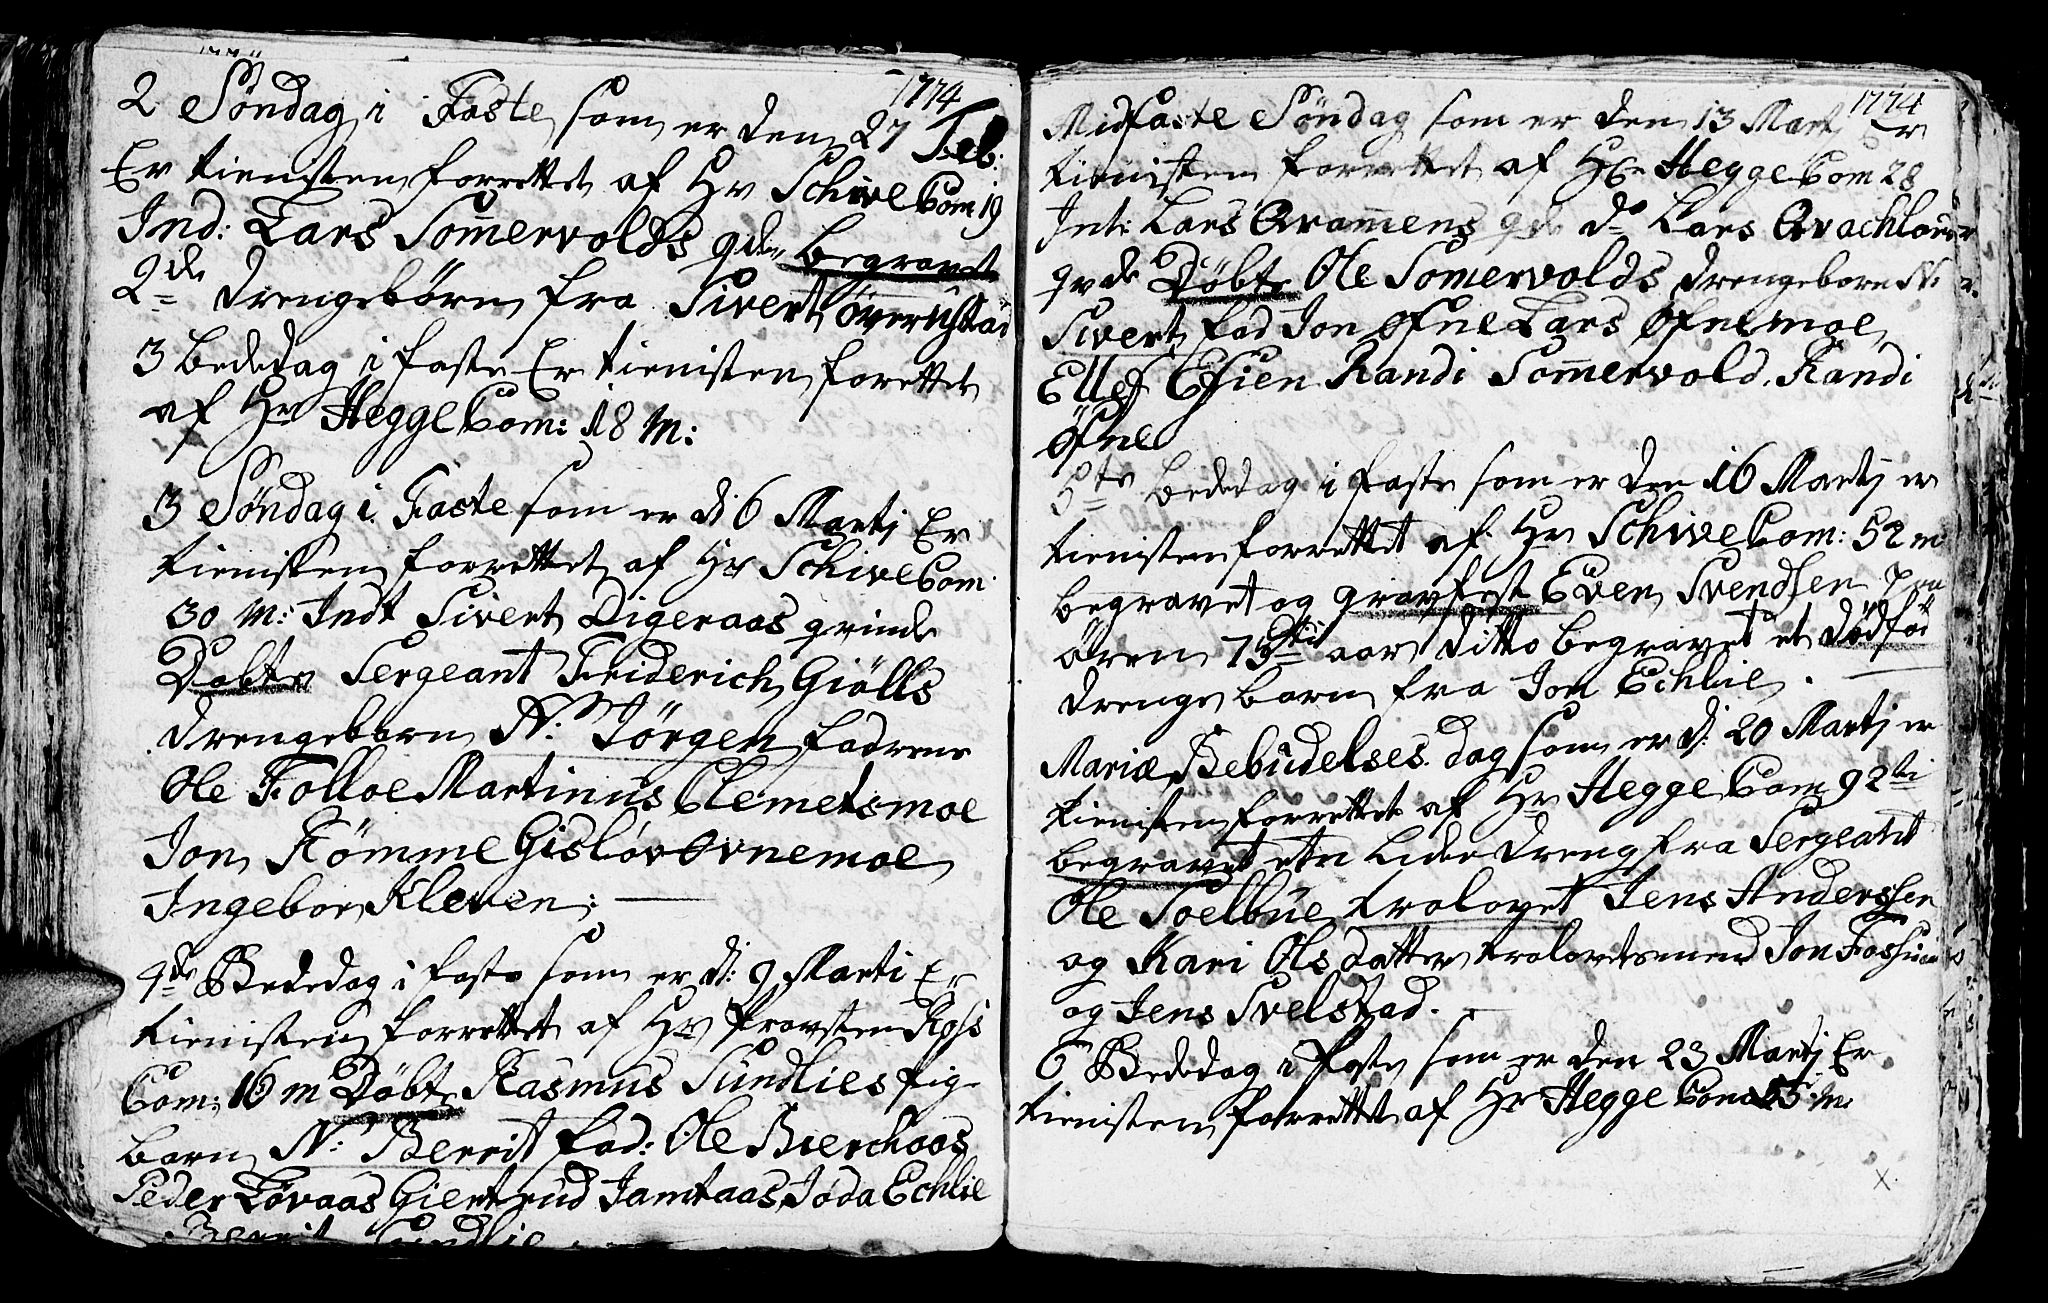 1774
2 Söndag i Faste som er den 27 Feb:
Er tienisten forrettet af Hr Schive Com 19
Ind: Lars Som̅ervolds qde begravet
2de drengebörn fra Sivert överustad
3 Bededag i faste Er tienisten forettet
af Hr Hegge Com: 18 M:
3 Söndag i Faste som er d: 6 Martj Er
tienisten forrettet af Hr Schive Com
30 M: Indt Sivert Digeraas qvinde
Döbte Sergeant Friderich Giölls
drengebarn N: Jörgen fadrene
Ole Folloe Martinus Clemetsmoe
Jon Römme Gisløv Ovnemoe
Ingebor Kleven:
4de Bededag i faste som er d: 9 Marti Er
tienisten forrettet af Hr Provsten Ross
Com: 16 m Döbte Rasmus Sundlies pige
barn N: Berrit fad: Ole Bierchaas
Peder Løvaas Giertrud Jamtaas Joda Echlie
Berrit Sundlie
1774
Midfaste Söndag som er den 13 Martj Er
tienisten forrettet af Hr Hegge Com 28
Int: Lars Qvam̅ens qde do Lars
qvde Döbte Ole Somervolds drengebarn N:
Sivert fad Jon Øfne Lars Øfnemoe
Ellef Esien Randi Som̅ervold. Randi
Øfne
5te Bededag i faste som er den 16 Martj er
tienisten forrettet af Hr Schive Com: 52 m
begravet og gravfest Even Svendsen fra
ören 75 aar ditto begravet et dödföd
drenge barn fra Jon Echlie.
Mariæ Bebudelses dag som er d: 20 Martj er
tienisten forrettet af Hr Hegge Com 92ti
begravet etn liden dreng fra Sergeant
Ole Soelbue trolovet Jens Anderssen
og Kari Olsdatter trolovetsmend Jon Fossum
og Jens Svelstad.
6 Bededag i faste som er den 23 Martj Er
tienisten forrettet af Hr Hegge Com 55 M:
x